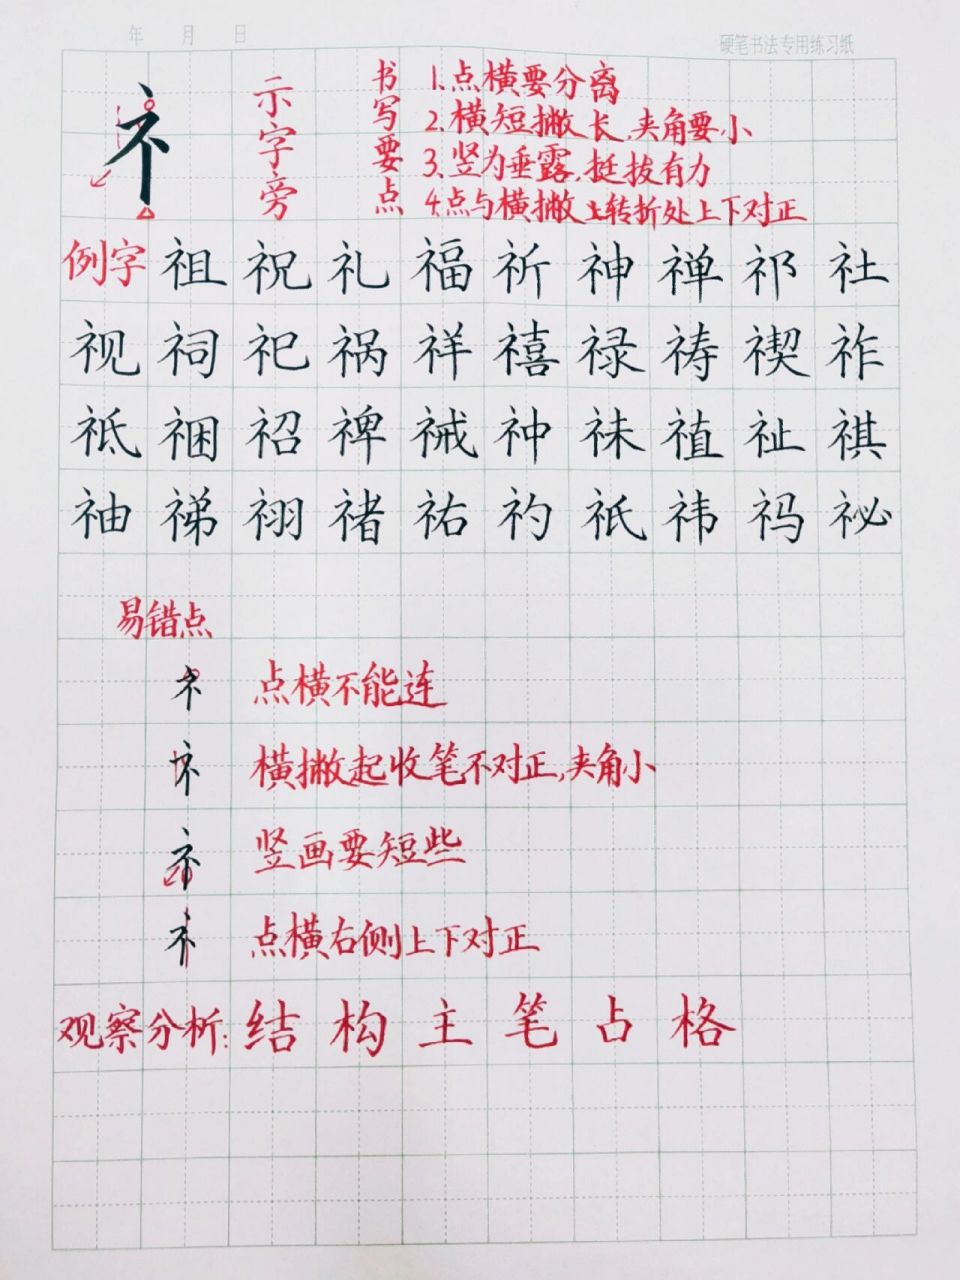 年 月 日 硬笔书法专用练习纸
礻 示字旁 书写要点
1.点横要分离
2.横短撇长,夹角要小
3.竖为垂露,挺拔有力
4.点与横撇上转折处上下对正
例字 祖 祝 礼 福 祈 神 禅 祁 社
视 祠 祀 祸 祥 禧 禄 祷 禊 祚
祗 祵 祒 禆 祴 神 祙 禃 祉 祺
祌 䄺 祤 禇 祐 礿 祇 祎 祃 祕
易错点
礻 点横不能连
礻 横撇起收笔不对正,夹角小
礻 竖画要短些
礻 点横右侧上下对正
观察分析:结构主笔占格